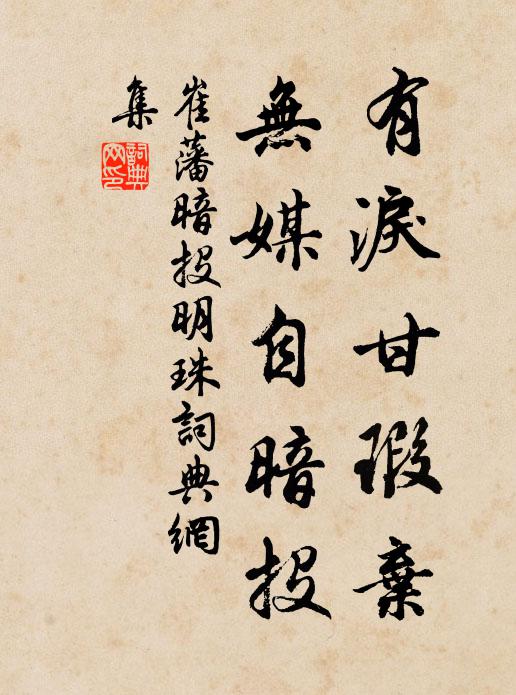 有淚甘瑕棄
無媒自暗投
崔藩暗投明珠詞典網
集
詞典網印